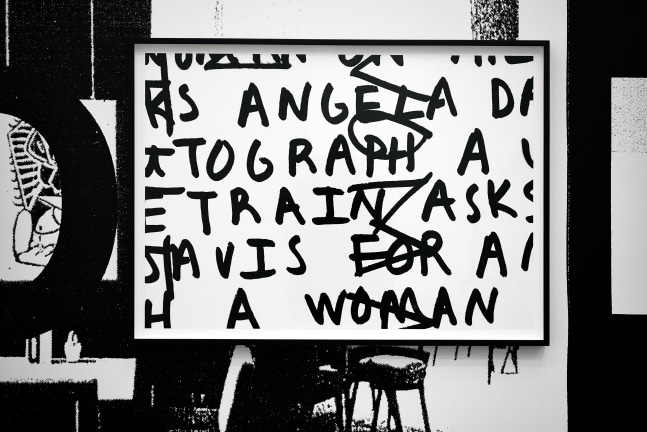 KS ANGELA DA
TOGRAPH A
TRAIN ASKS
AVIS FOR A
H A WOMAN